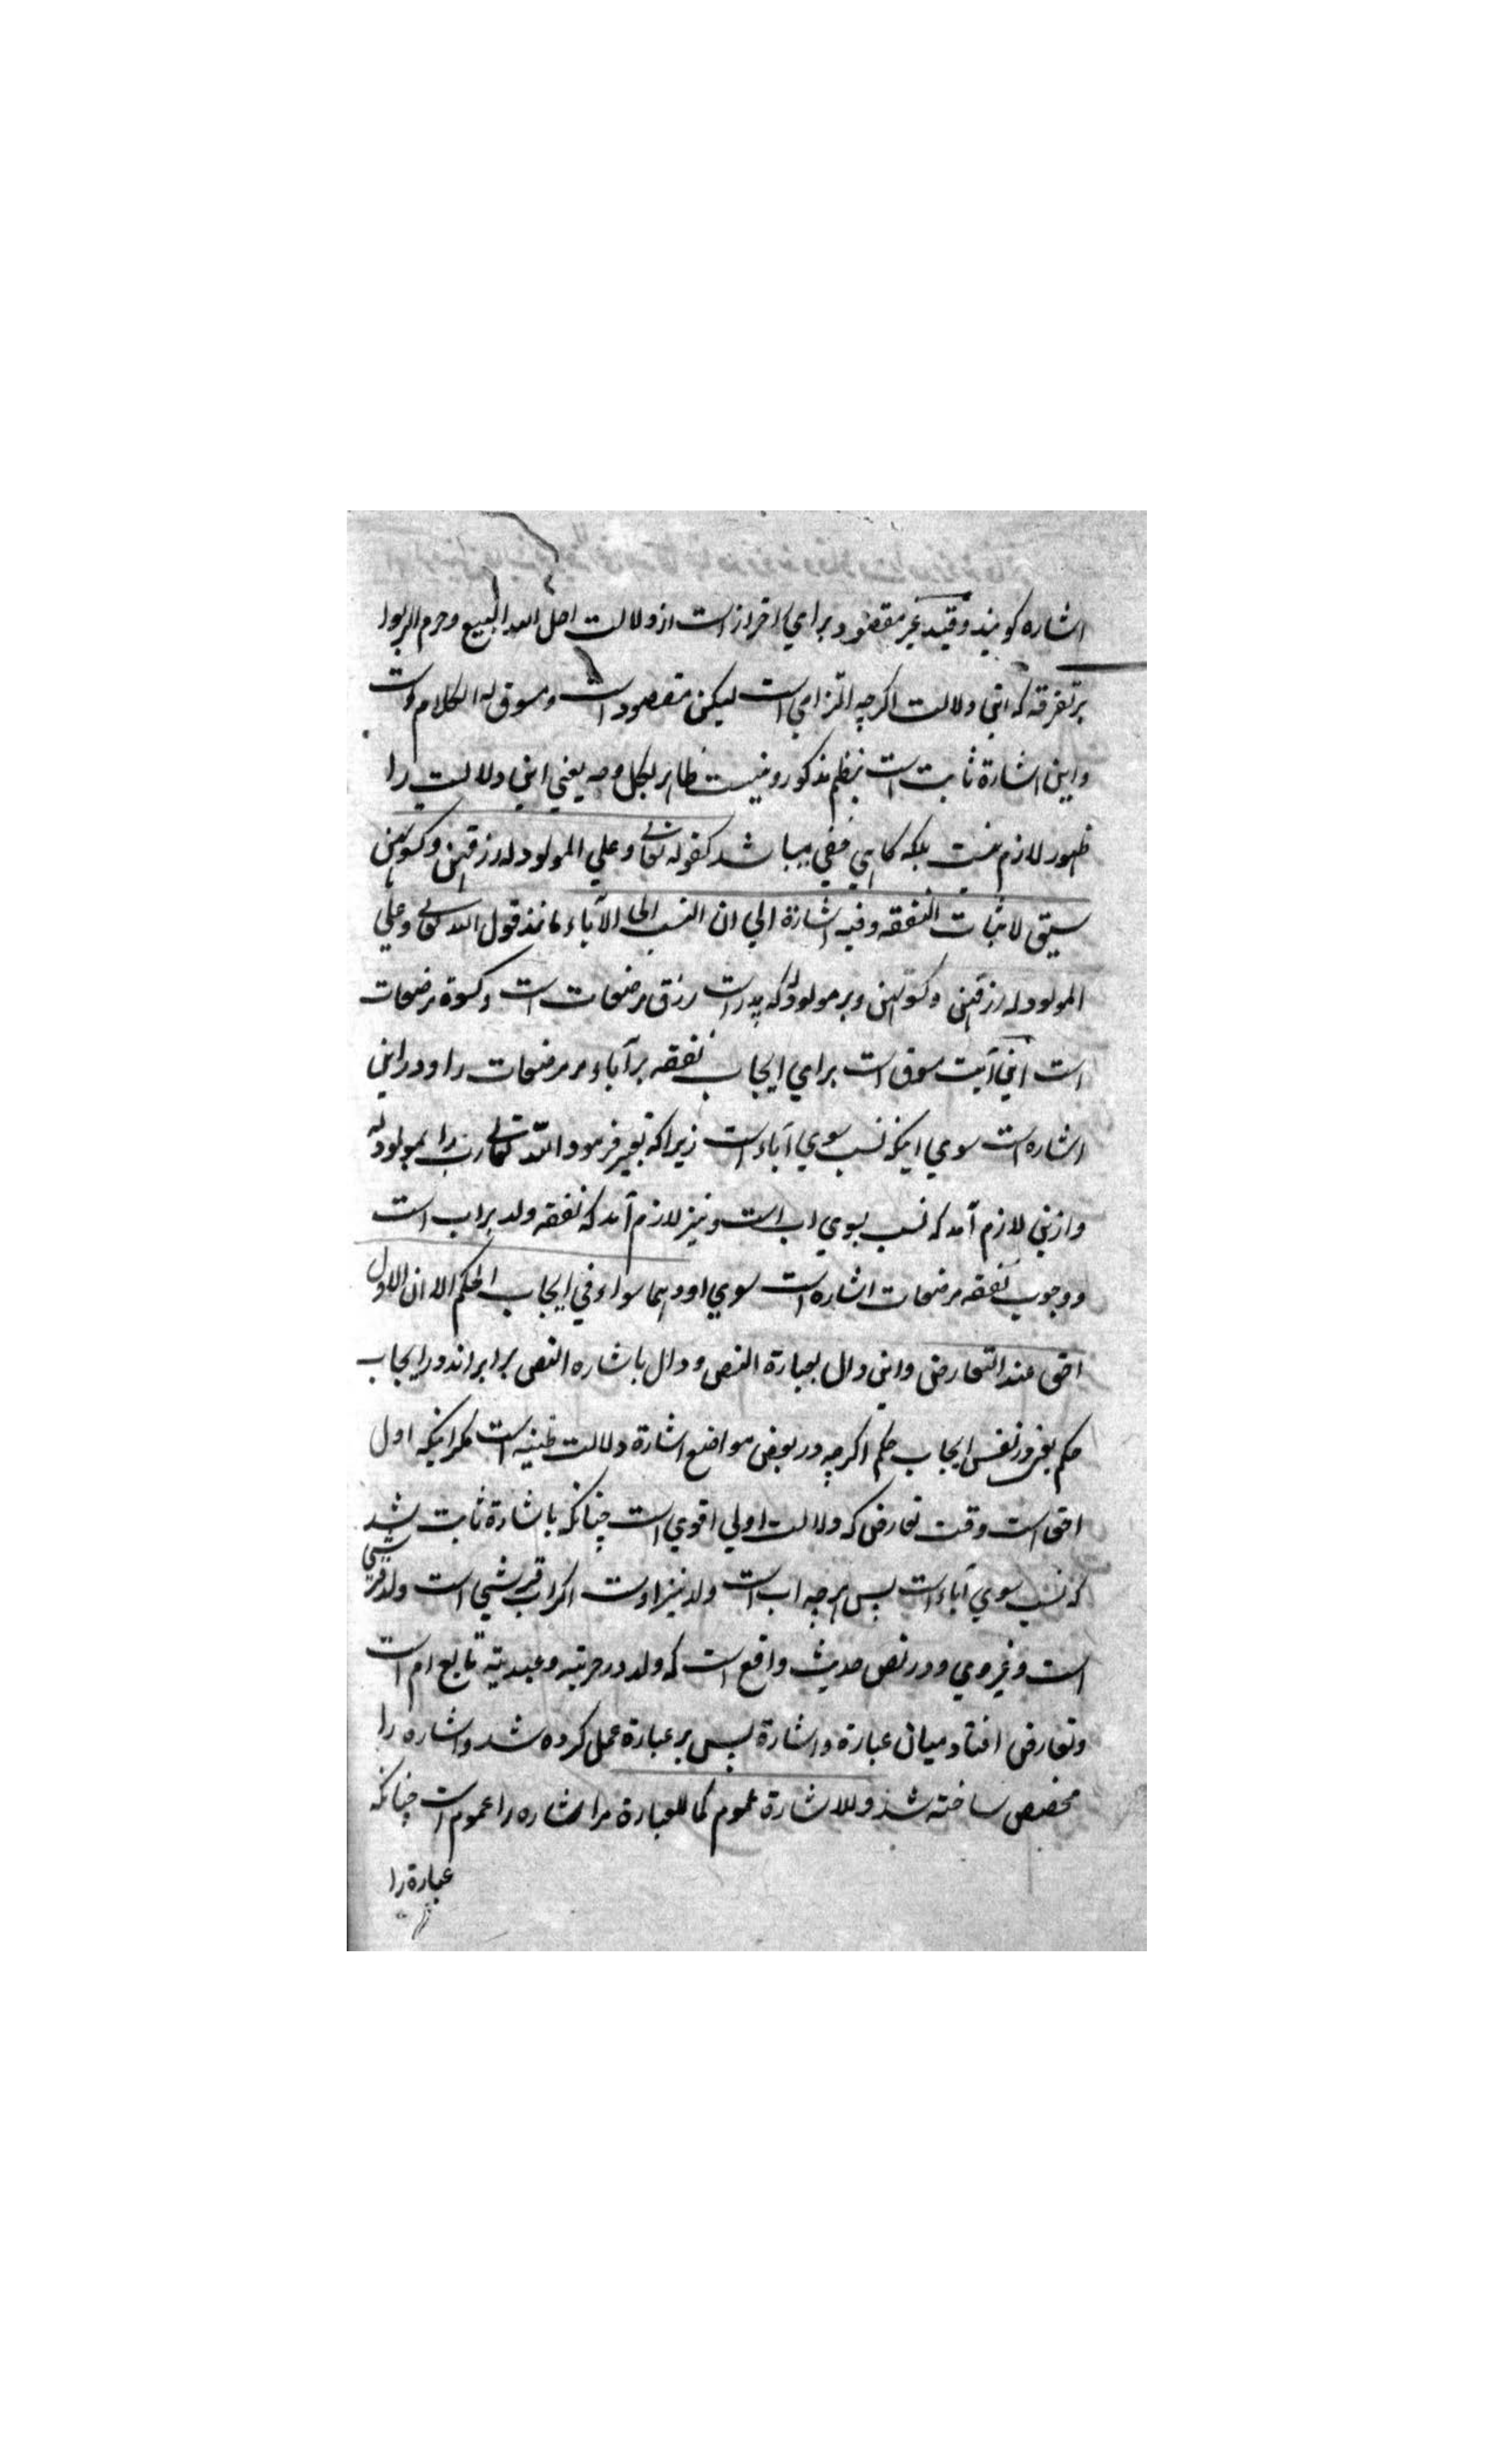 اشاره گویند وقید غیر مقصود برای احتراز است از دلالت احل الله البیع وحرم الربوا
بر تفرقه که این دلالت اگرچه التزامی است لیکن مقصود است ومسوق له الکلام است
واین اشارة ثابت است بنظم مذکور ونیست ظاهر بکل وجه یعنی این دلالت را
ظهور لازم نیست بلکه گاهی خفی میباشد کقوله تعالی وعلی المولود له رزقهن وکسوتهن
سیق لاثبات النفقه وفیه اشارة الی ان النسب الی الآباء مانند قول الله تعالی وعلی
المولود له رزقهن وکسوتهن وبر مولود له که پدر است رزق مرضعات است وکسوة مرضعات
است این آیت مسوق است برای ایجاب نفقه بر آباء مر مرضعات را ودر این
اشاره است سوی اینکه نسب سوی آباء است زیرا که تعبیر فرمود الله تعالی اب را بمولود له
وازین لازم آمد که نسب بسوی اب است ونیز لازم آمد که نفقه ولد بر اب است
ووجوب نفقه مرضعات اشاره است سوی او وهما سواء فی ایجاب الحکم الا ان الاول
احق عند التعارض واین دال بعبارة النص ودال باشاره النص برابر اند در ایجاب
حکم یعنی در نفس ایجاب حکم اگرچه در بعض مواضع اشارة دلالت ظنیه است مگر اینکه اول
احق است وقت تعارض که دلالت اولی اقوی است چنانکه باشارة ثابت شد
که نسب سوی آباء است پس هرچه اب است ولد نیز اوست اگر اب قریشی است ولد قریشی
است وغیر وی ودر نص حدیث واقع است که ولد در حریته وعبدیته تابع ام است
وتعارض افتاد میان عبارة واشارة پس بر عبارة عمل کرده شد واشاره را
مخصص ساخته شد وللاشارة عموم کما للعبارة مر اشاره را عموم است چنانکه
عبارة را